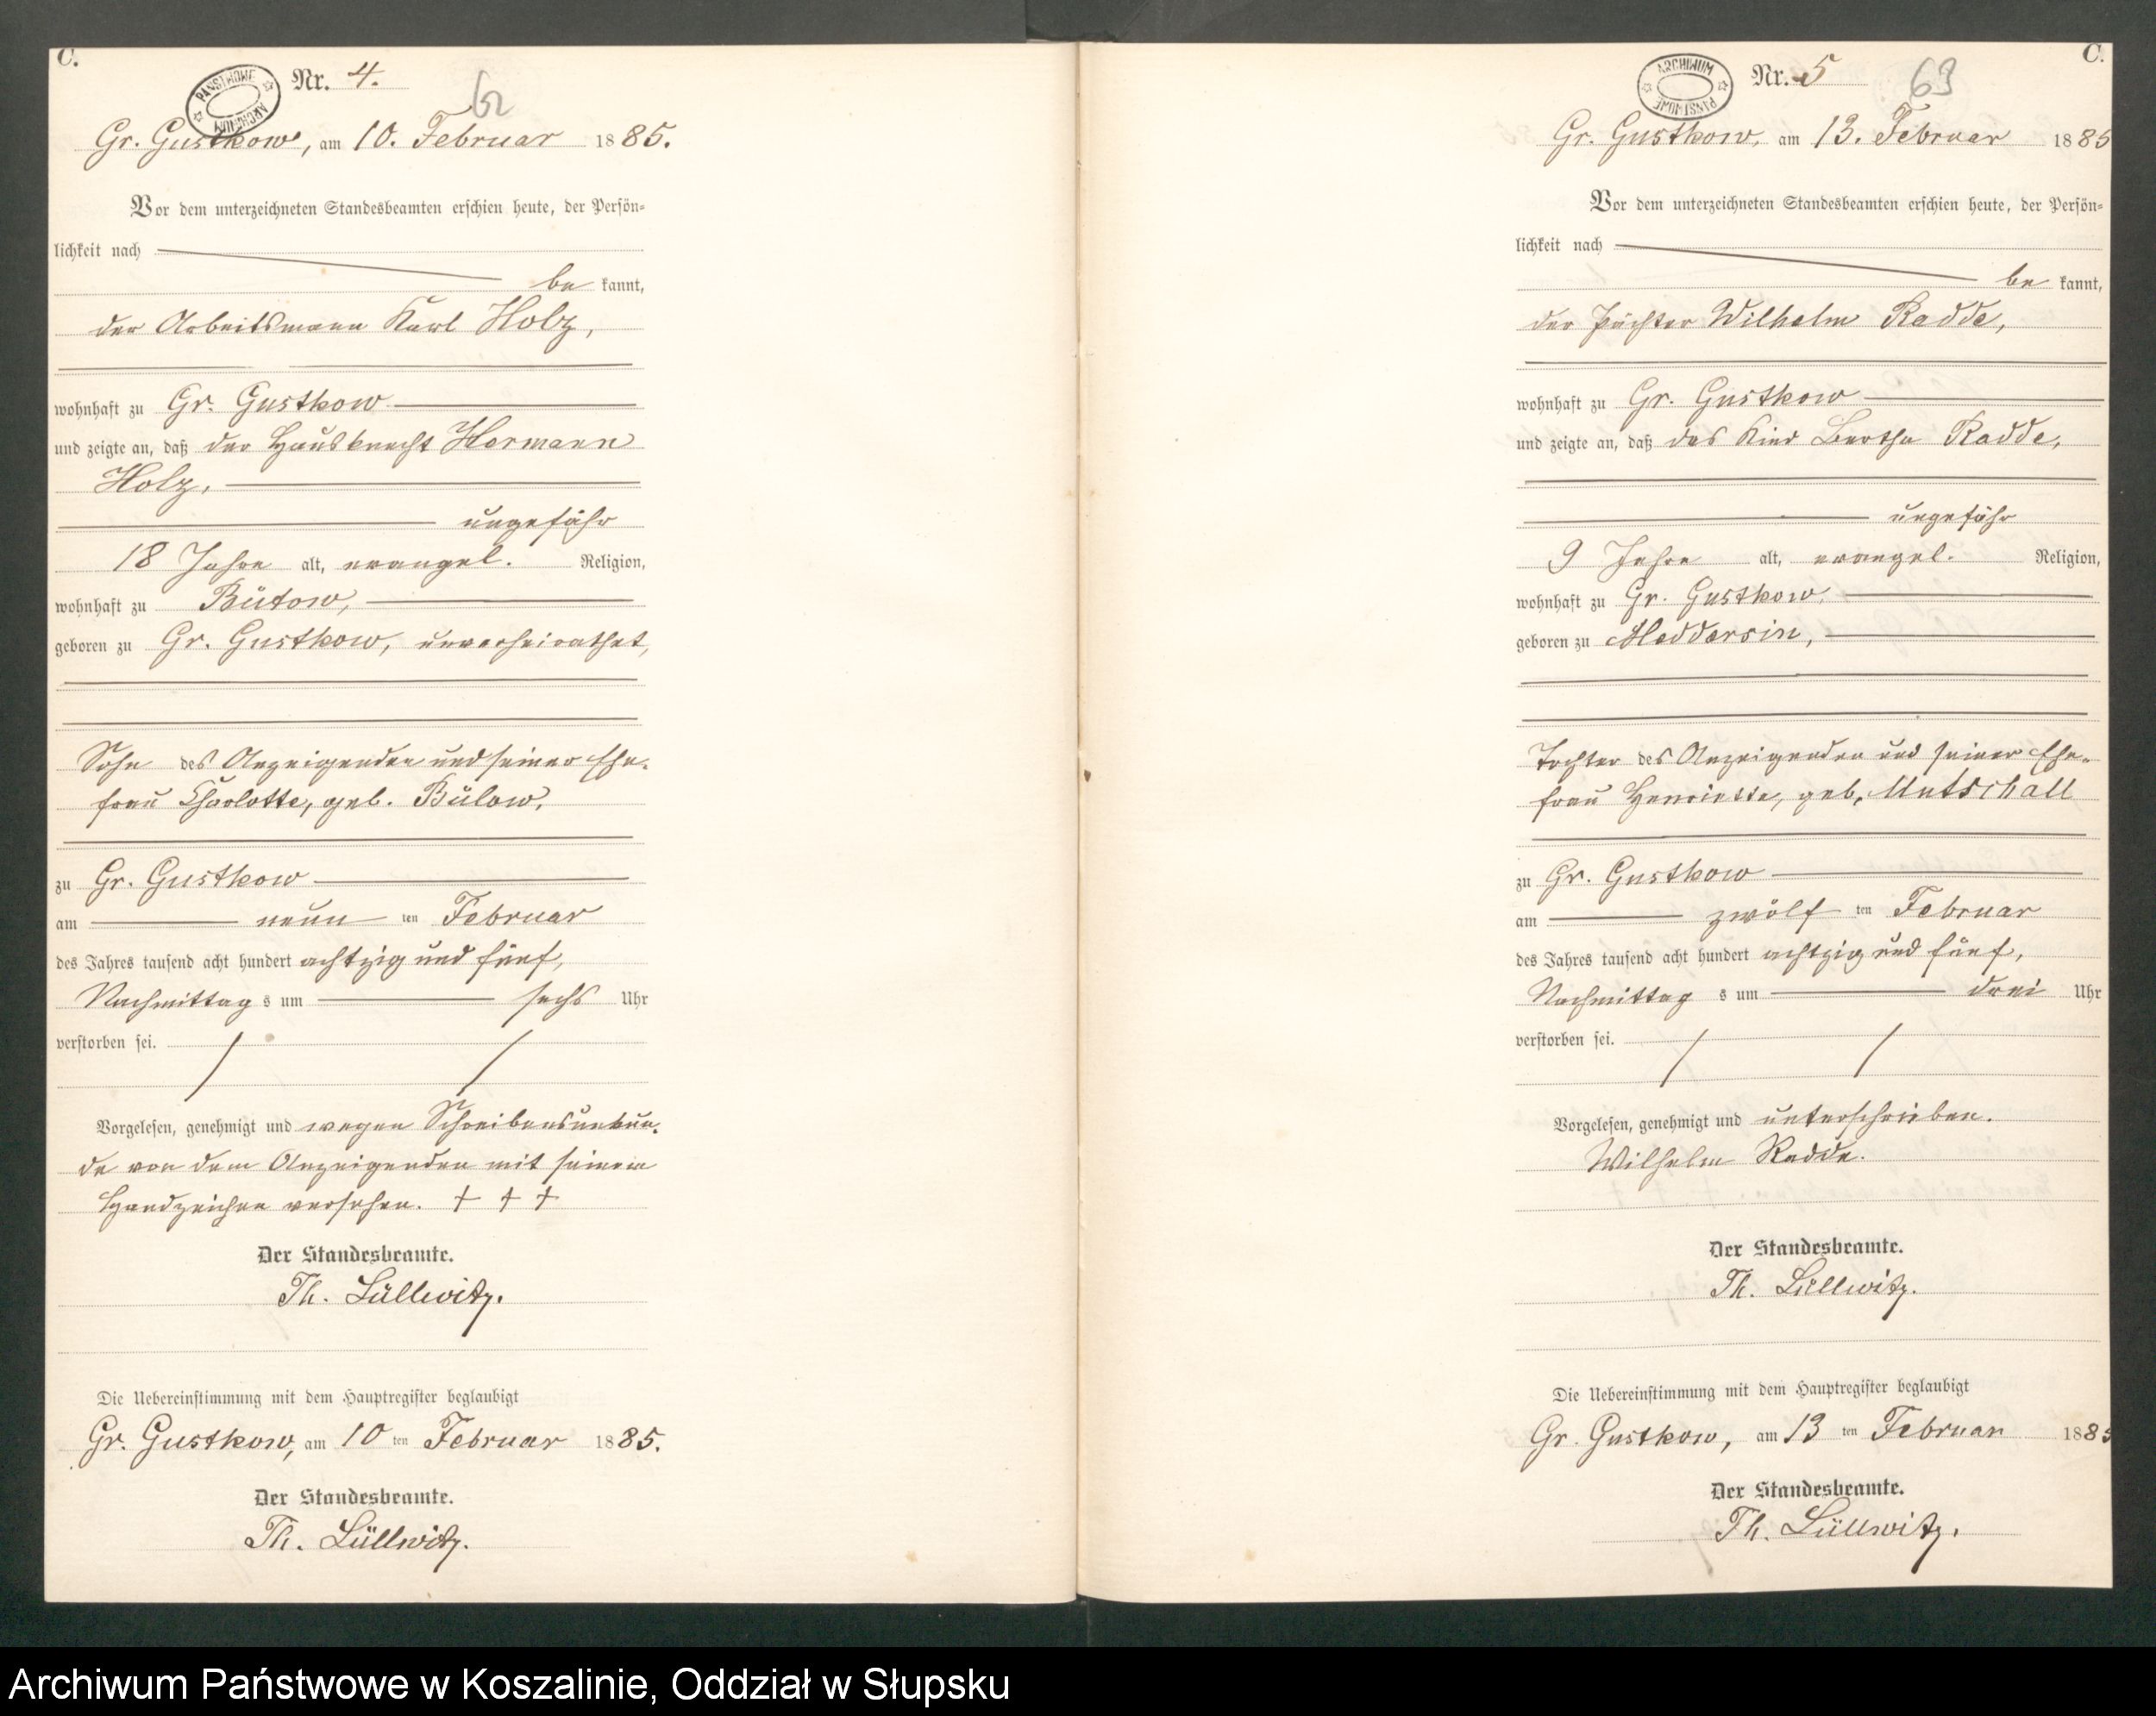 C.
PAŃSTWOWE ARCHIWUM
Nr. 4.
62
Gr. Gustkow, am 10. Februar 1885.
Vor dem unterzeichneten Standesbeamten erschien heute, der Persön-
lichkeit nach
bekannt,
der Arbeitsmann Karl Holz,
wohnhaft zu Gr. Gustkow
und zeigte an, daß der Hausknecht Hermann
Holz,
ungefähr
18 Jahre alt, evangel. Religion,
wohnhaft zu Bütow,
geboren zu Gr. Gustkow, unverheirathet,
Sohn des Anzeigenden und seiner Ehe-
frau Charlotte, geb. Bülow,
zu Gr. Gustkow
am neunten Februar
des Jahres tausend acht hundert achtzig und fünf,
Nachmittags um sechs Uhr
verstorben sei.
Vorgelesen, genehmigt und wegen Schreibensunkun-
de von dem Anzeigenden mit seinem
Handzeichen versehen. † † †
Der Standesbeamte.
Th. Lüllwitz.
Die Uebereinstimmung mit dem Hauptregister beglaubigt
Gr. Gustkow, am 10ten Februar 1885.
Der Standesbeamte.
Th. Lüllwitz.
C.
ARCHIWUM PAŃSTWOWE
Nr. 5
63
Gr. Gustkow, am 13. Februar 1885
Vor dem unterzeichneten Standesbeamten erschien heute, der Persön-
lichkeit nach
bekannt,
der Pächter Wilhelm Radde,
wohnhaft zu Gr. Gustkow
und zeigte an, daß das Kind Bertha Radde,
ungefähr
9 Jahre alt, evangel. Religion,
wohnhaft zu Gr. Gustkow,
geboren zu Meddersin,
Tochter des Anzeigenden und seiner Ehe-
frau Henriette, geb. Mutschall
zu Gr. Gustkow
am zwölften Februar
des Jahres tausend acht hundert achtzig und fünf,
Nachmittags um drei Uhr
verstorben sei.
Vorgelesen, genehmigt und unterschrieben.
Wilhelm Radde.
Der Standesbeamte.
Th. Lüllwitz.
Die Uebereinstimmung mit dem Hauptregister beglaubigt
Gr. Gustkow, am 13ten Februar 1885
Der Standesbeamte.
Th. Lüllwitz.
Archiwum Państwowe w Koszalinie, Oddział w Słupsku